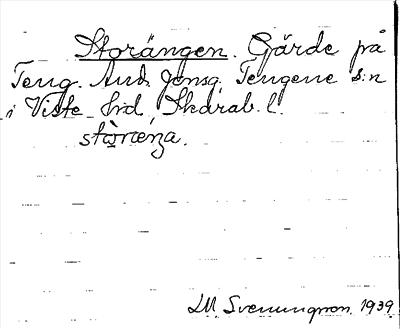 Storängen. Gärde på
Teng. And. Jensg, Tengene s:n
i Viste hrd, Skarab. l.
stòræŋa.
LM. Svenungsson. 1939